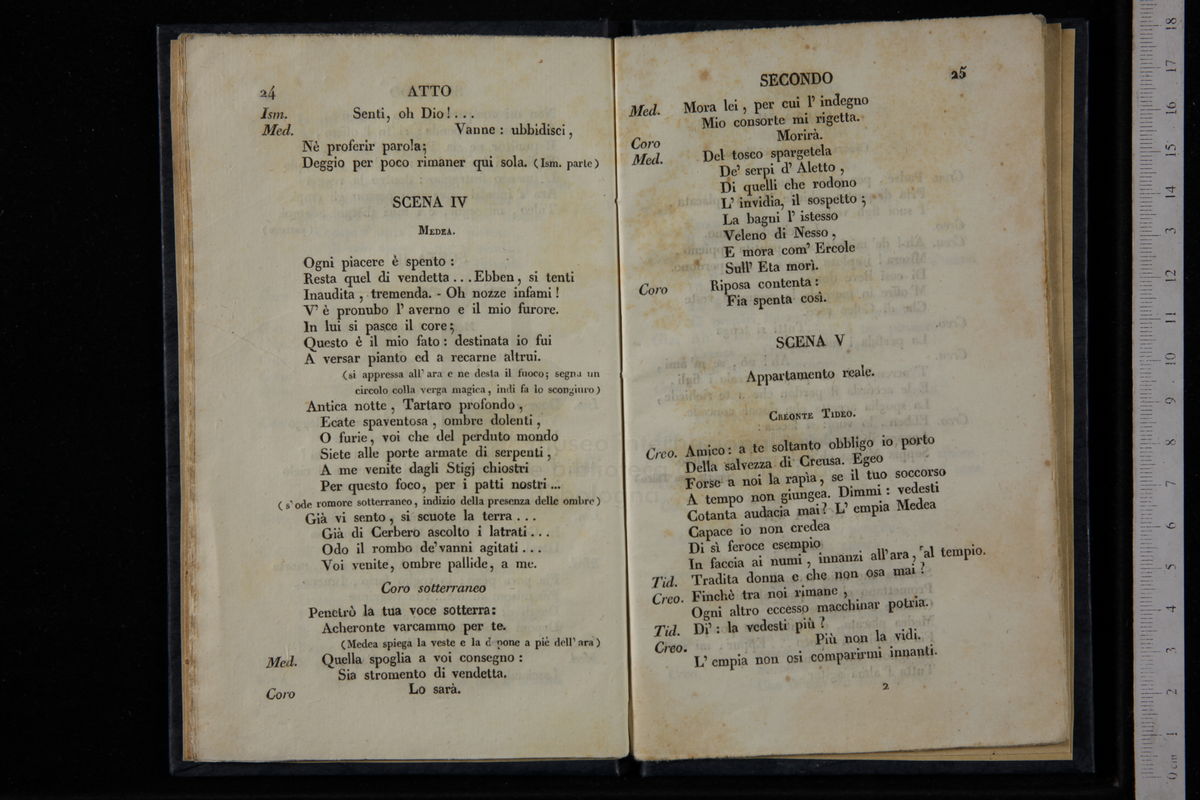 24
ATTO
Ism. Senti, oh Dio! . . .
Med. Vanne : ubbidisci ,
Nè proferir parola;
Deggio per poco rimaner qui sola. (Ism. parte)
SCENA IV
MEDEA.
Ogni piacere è spento :
Resta quel di vendetta . . . Ebben, si tenti
Inaudita , tremenda. - Oh nozze infami !
V' è pronubo l' averno e il mio furore.
In lui si pasce il core;
Questo è il mio fato : destinata io fui
A versar pianto ed a recarne altrui.
(si appressa all' ara e ne desta il fuoco; segna un
circolo colla verga magica, indi fa lo scongiuro)
Antica notte , Tartaro profondo ,
Ecate spaventosa , ombre dolenti ,
O furie, voi che del perduto mondo
Siete alle porte armate di serpenti ,
A me venite dagli Stigj chiostri
Per questo foco, per i patti nostri ...
(s' ode romore sotterraneo, indizio della presenza delle ombre)
Già vi sento , si scuote la terra . . .
Già di Cerbero ascolto i latrati . . .
Odo il rombo de' vanni agitati . . .
Voi venite, ombre pallide, a me.
Coro sotterraneo
Penetrò la tua voce sotterra:
Acheronte varcammo per te.
(Medea spiega la veste e la d pone a piè dell' ara)
Med. Quella spoglia a voi consegno :
Sia stromento di vendetta.
Coro Lo sarà.
SECONDO
25
Med. Mora lei , per cui l' indegno
Mio consorte mi rigetta.
Coro Morirà.
Med. Del tosco spargetela
De' serpi d' Aletto ,
Di quelli che rodono
L' invidia, il sospetto ;
La bagni l' istesso
Veleno di Nesso ,
E mora com' Ercole
Sull' Eta morì.
Coro Riposa contenta :
Fia spenta così.
SCENA V
Appartamento reale.
CREONTE TIDEO.
Creo. Amico: a te soltanto obbligo io porto
Della salvezza di Creusa. Egeo
Forse a noi la rapìa, se il tuo soccorso
A tempo non giungea. Dimmi : vedesti
Cotanta audacia mai? L' empia Medea
Capace io non credea
Di sì feroce esempio
In faccia ai numi , innanzi all' ara, al tempio.
Tid. Tradita donna e che non osa mai ?
Creo. Finchè tra noi rimane ,
Ogni altro eccesso macchinar potria.
Tid. Di' : la vedesti più ?
Creo. Più non la vidi.
L' empia non osi comparirmi innanti.
2